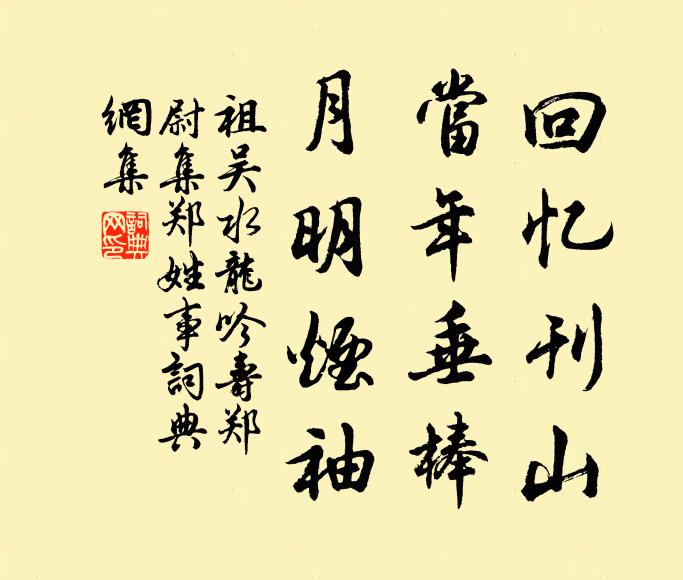 回忆刊山
當年垂棒
月明煙袖
祖吴水龍吟壽郑
尉集郑姓事詞典
網集
詞典網印